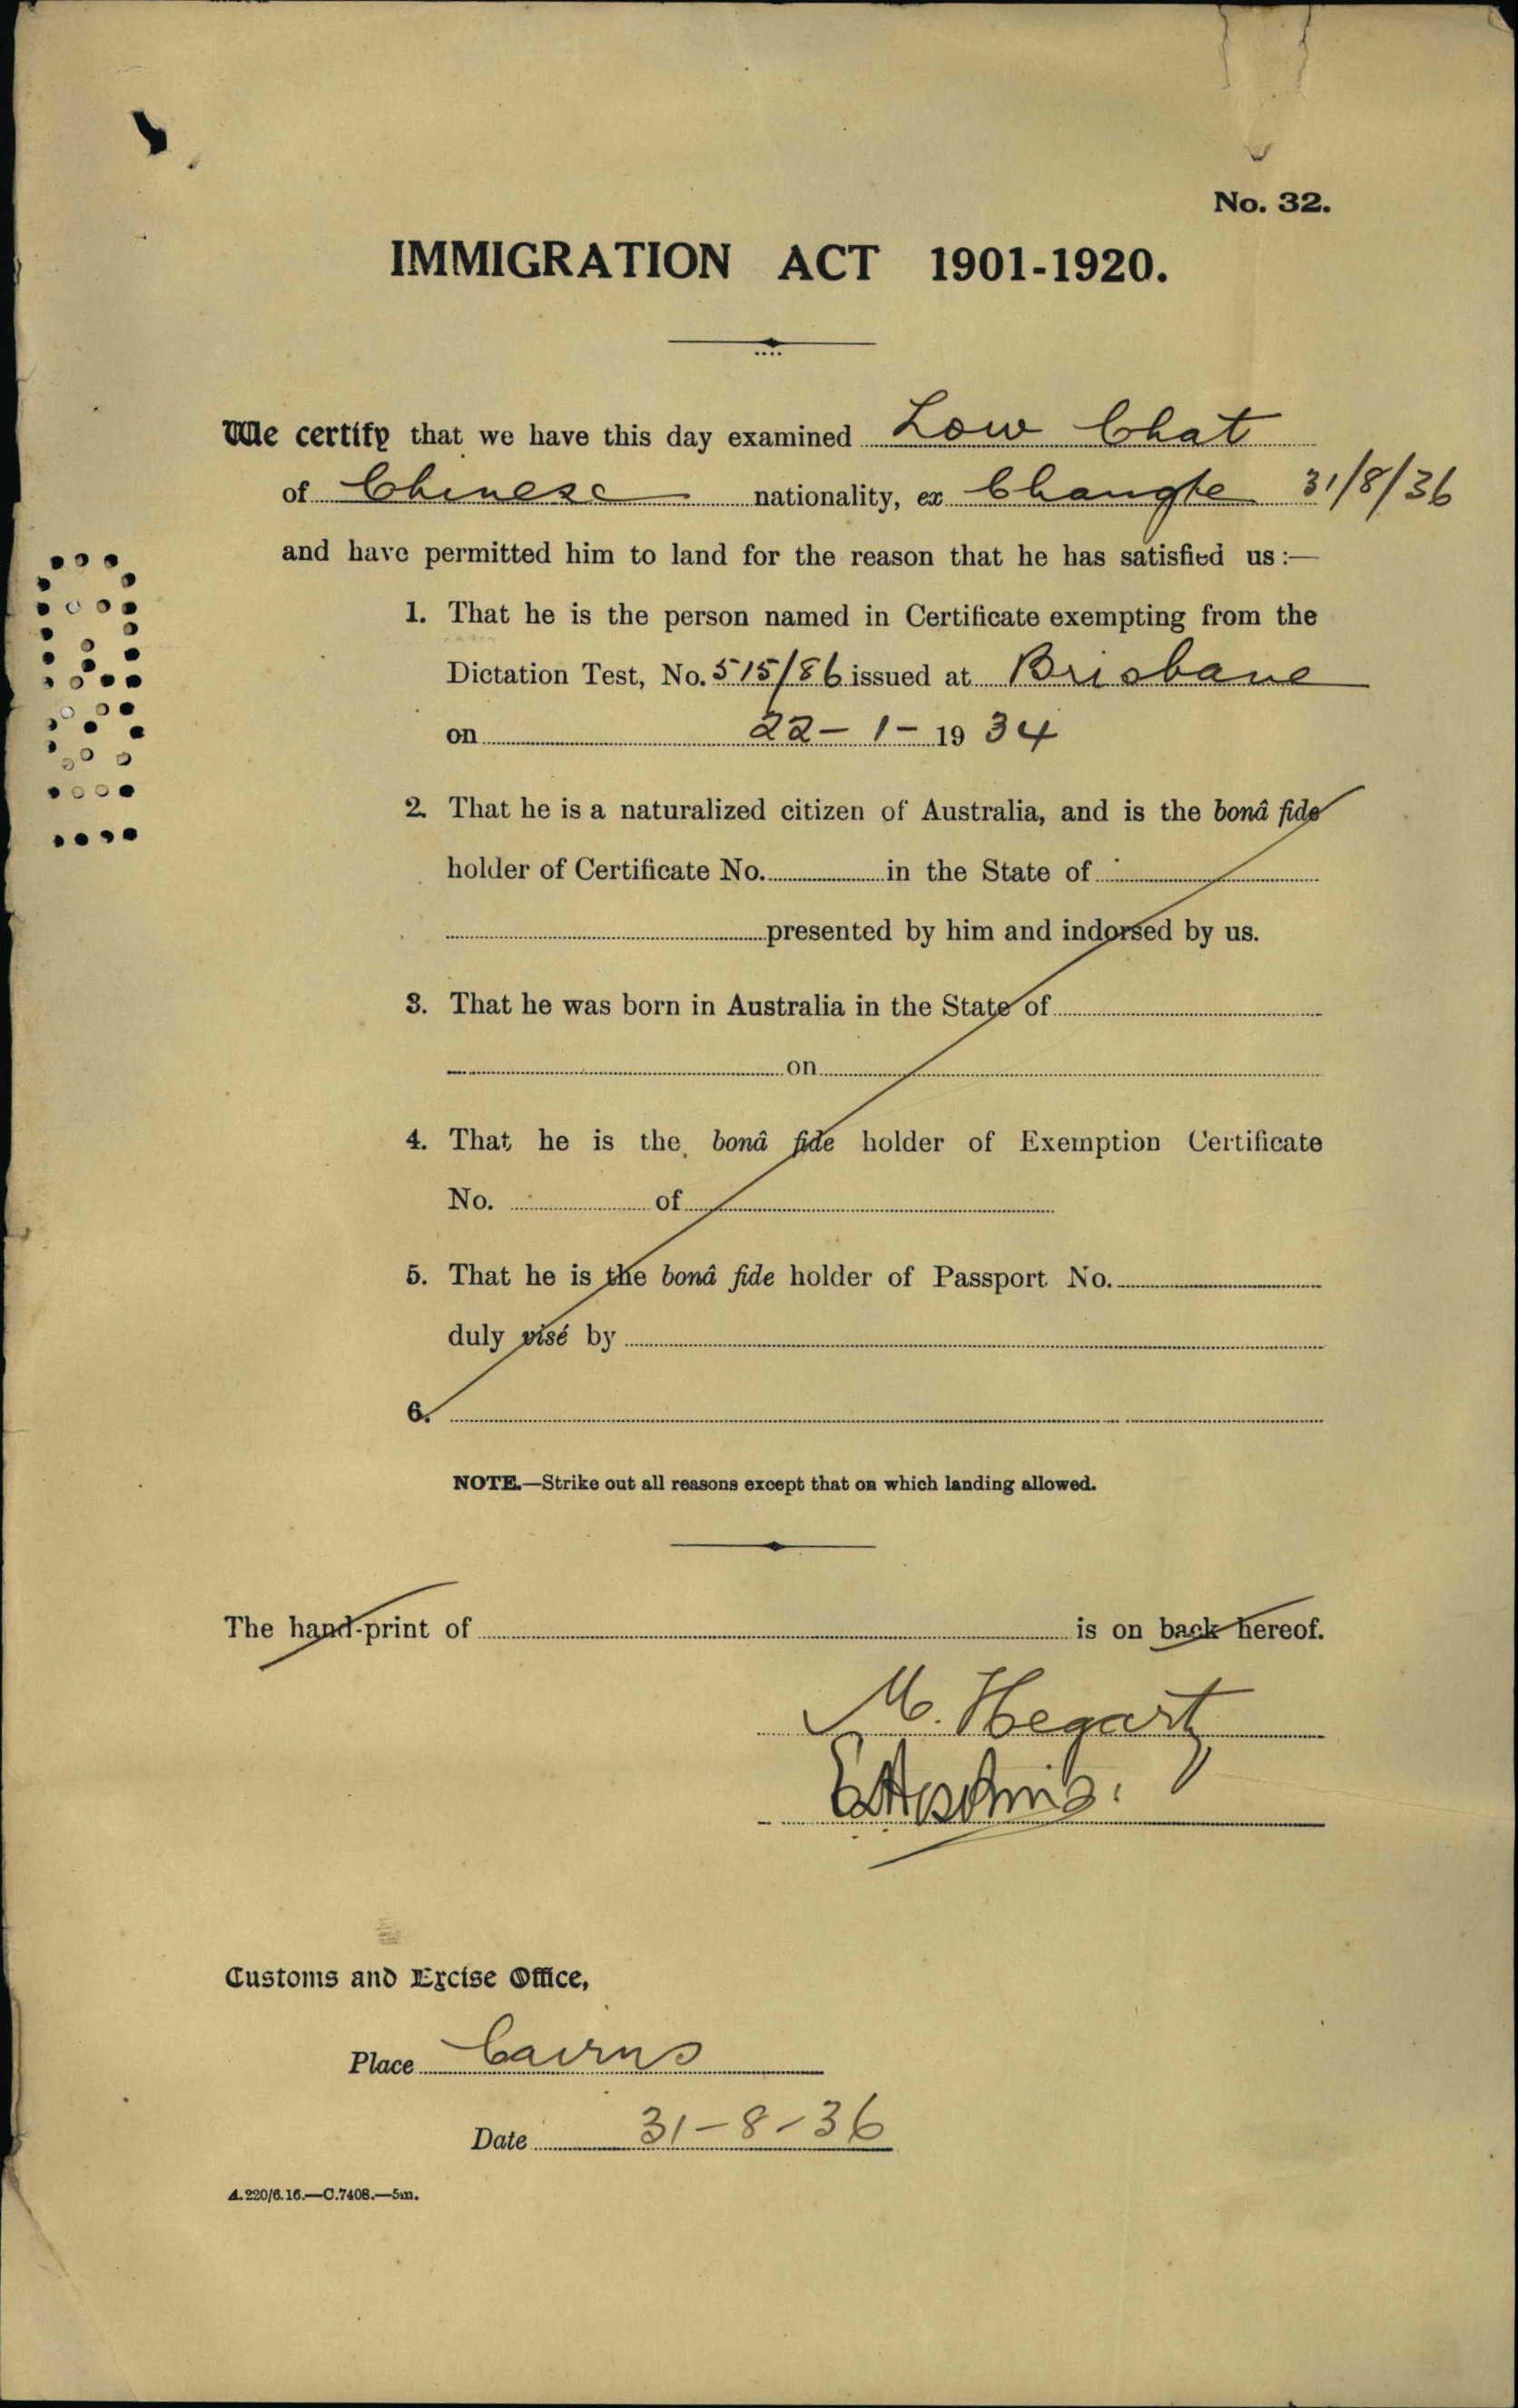 No. 32.
IMMIGRATION ACT 1901-1920.
We certify that we have this day examined Low Chat
of Chinese nationality, ex Changte 31/8/36
and have permitted him to land for the reason that he has satisfied us:—
1. That he is the person named in Certificate exempting from the
Dictation Test, No. 515/86 issued at Brisbane
on 22-1-1934
2. That he is a naturalized citizen of Australia, and is the bonâ fide
holder of Certificate No. in the State of
presented by him and indorsed by us.
3. That he was born in Australia in the State of
on
4. That he is the bonâ fide holder of Exemption Certificate
No. of
5. That he is the bonâ fide holder of Passport No.
duly visé by
6.
NOTE.—Strike out all reasons except that on which landing allowed.
The hand-print of is on back hereof.
M. Hegarty
Customs and Excise Office,
Place Cairns
Date 31-8-36
A.220/6.16.—C.7408.—5m.